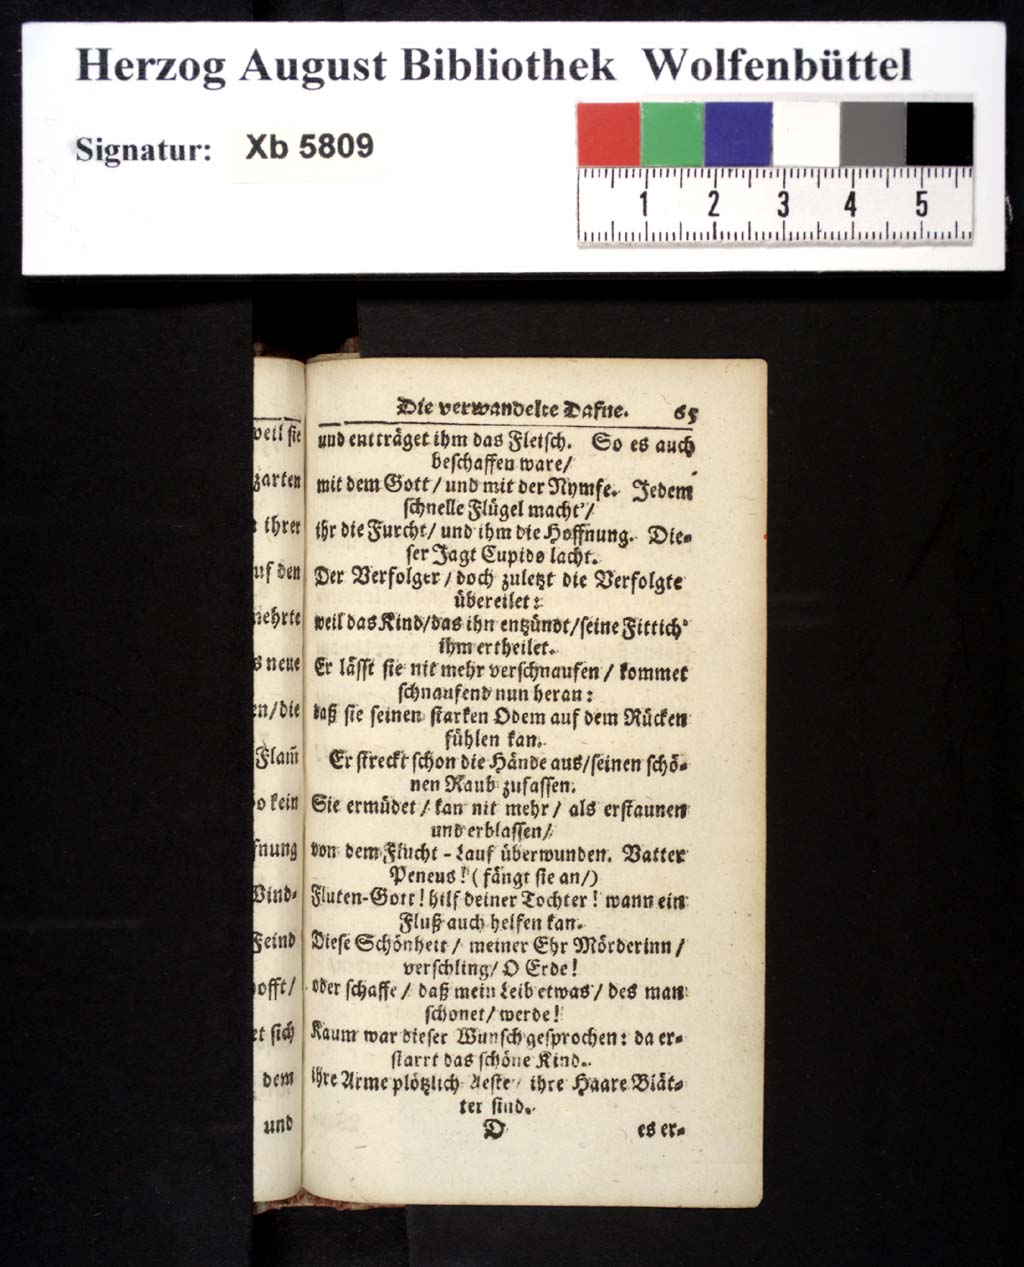 Herzog August Bibliothek Wolfenbüttel
Signatur: Xb 5809
1 2 3 4 5
weil sie
zarten
ihrer
auf den
mehrte
s neue
en/die
Flam̃
o kein
fnung
Wind-
Feind
hofft/
et sich
dem
und
Die verwandelte Dafne. 65
und entträget ihm das Fleisch. So es auch
beschaffen ware/
mit dem Gott/ und mit der Nymfe. Jedem
schnelle Flügel macht'/
ihr die Furcht/ und ihm die Hoffnung. Die-
ser Jagt Cupido lacht.
Der Verfolger/ doch zuletzt die Verfolgte
übereilet:
weil das Kind/das ihn entzündt/seine Fittich'
ihm ertheilet.
Er lässt sie nit mehr verschnaufen/ kommet
schnaufend nun heran:
daß sie seinen starken Odem auf dem Rücken
fühlen kan.
Er streckt schon die Hände aus/seinen schö-
nen Raub zufassen.
Sie ermüdet/ kan nit mehr/ als erstaunen
und erblassen/
von dem Flucht-Lauf überwunden. Vatter
Peneus! (fängt sie an/)
Fluten-Gott! hilf deiner Tochter! wann ein
Fluß auch helfen kan.
Diese Schönheit/ meiner Ehr Mörderinn/
verschling/ O Erde!
oder schaffe/ daß mein Leib etwas/ des man
schonet/ werde!
Kaum war dieser Wunsch gesprochen: da er-
starrt das schöne Kind.
ihre Arme plötzlich Aeste/ ihre Haare Blät-
ter sind.
D es er-